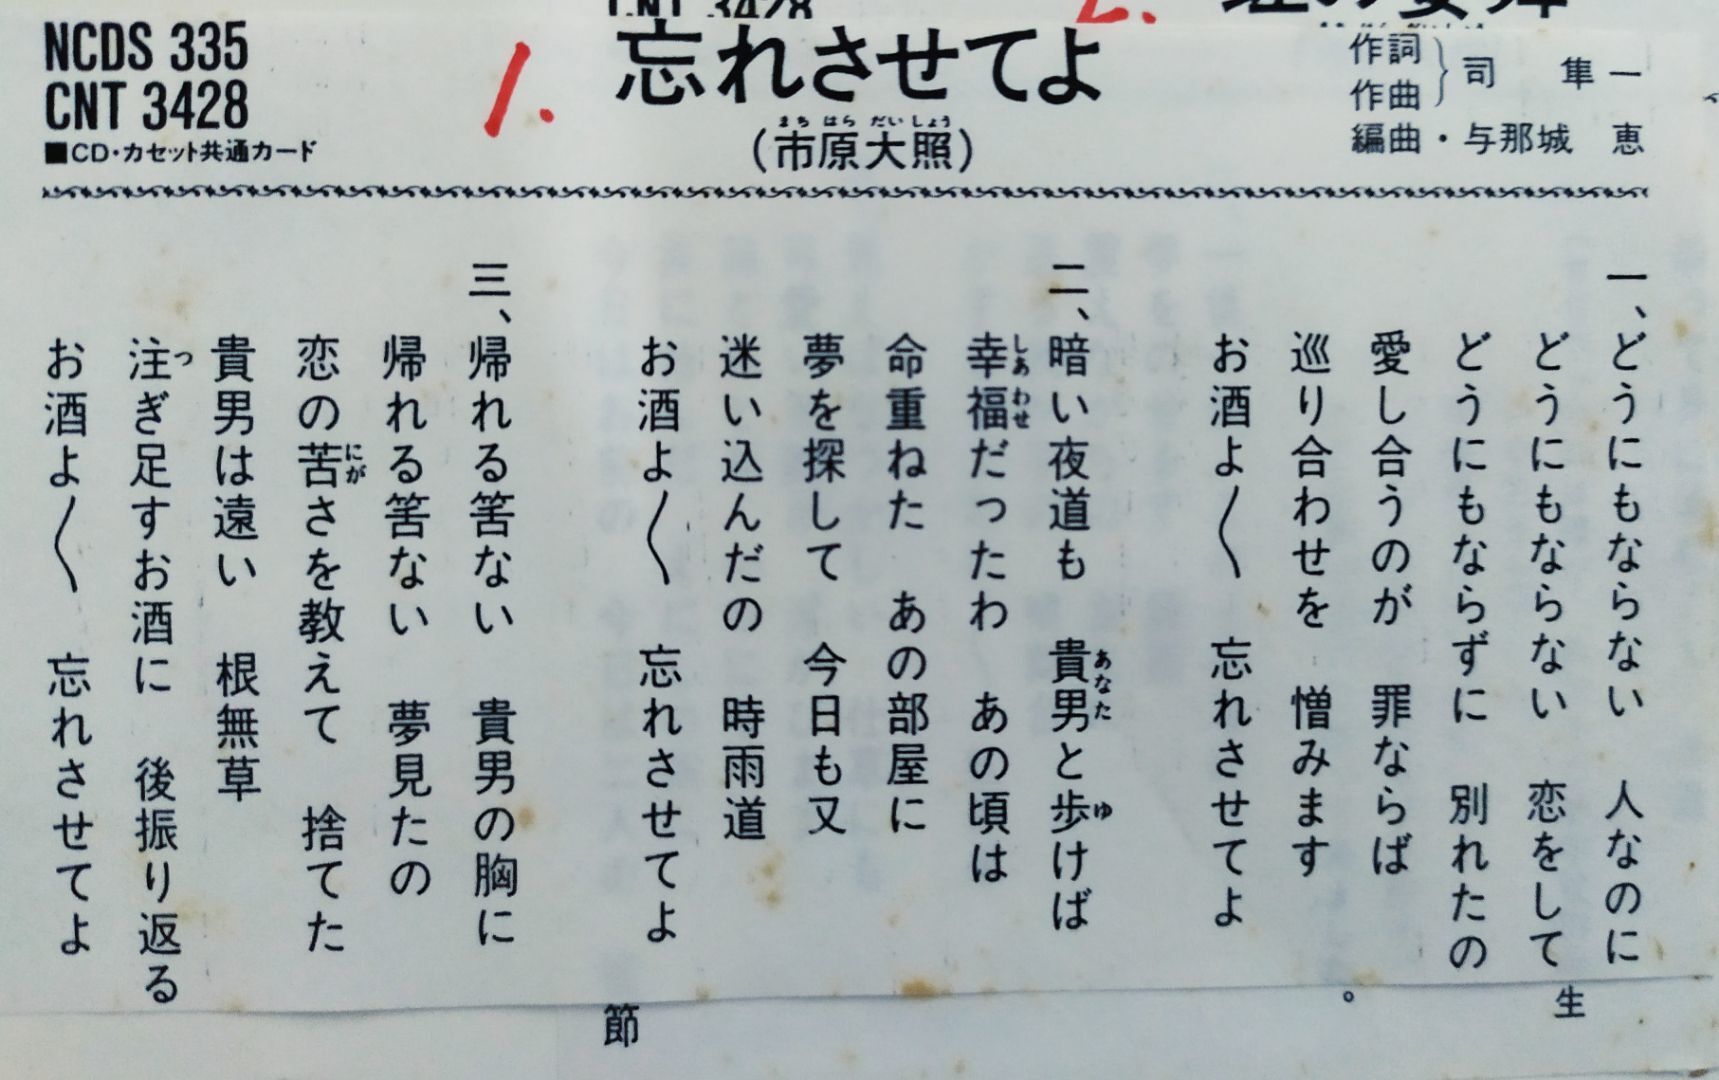 NCDS 335
CNT 3428
■CD・カセット共通カード
1.
忘れさせてよ
まち はら だい しょう
(市原大照)
作詞
作曲
司 隼一
編曲・与那城 恵
一、どうにもならない 人なのに
どうにもならない 恋をして
どうにもならずに 別れたの
愛し合うのが 罪ならば
巡り合わせを 憎みます
お酒よ〱 忘れさせてよ
二、暗い夜道も 貴男と歩けば
あなた ゆ
幸福だったわ あの頃は
しあ わせ
命重ねた あの部屋に
夢を探して 今日も又
迷い込んだの 時雨道
お酒よ〱 忘れさせてよ
三、帰れる筈ない 貴男の胸に
帰れる筈ない 夢見たの
恋の苦さを教えて 捨てた
にが
貴男は遠い 根無草
注ぎ足すお酒に 後振り返る
つ
お酒よ〱 忘れさせてよ
CNT 3428
2.
生
。
節